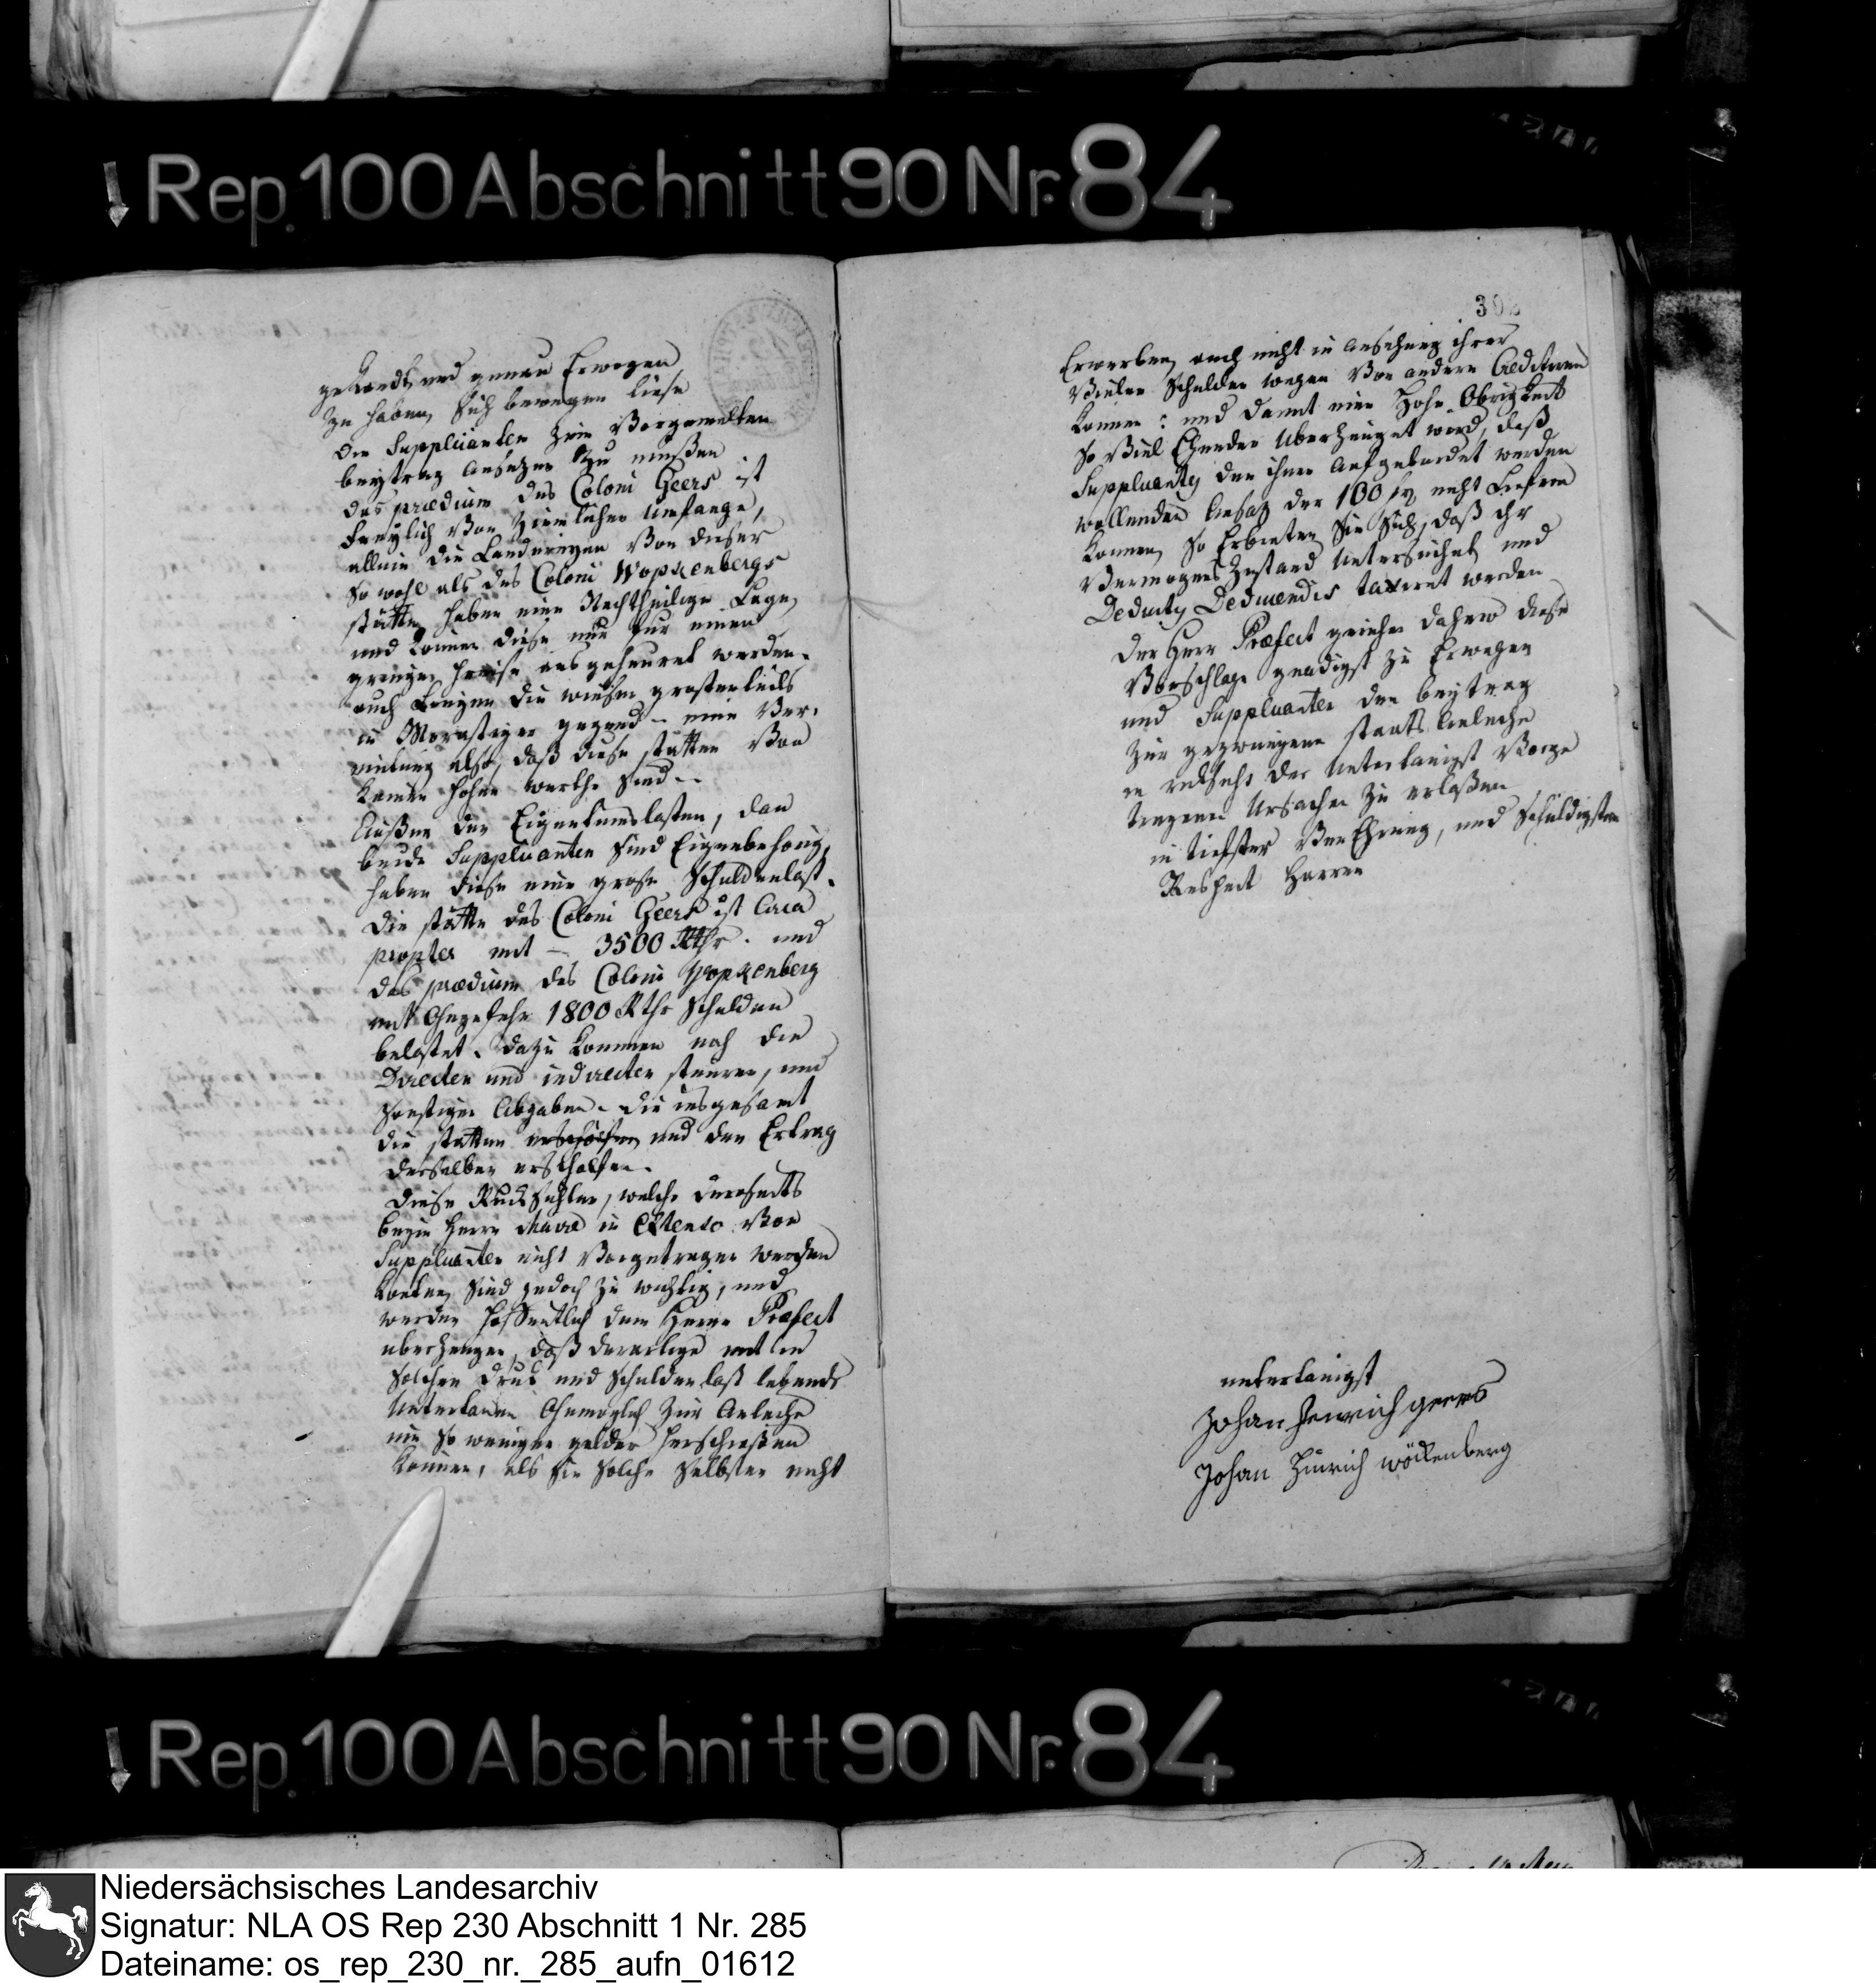 Rep. 100 Abschnitt 90 Nr. 84
gekandt und genau Erwogen
zu haben, sich bewegen liese
die Supplicanten zum Vorgemelten
beytrag ansezen zu müßen
das praedium des Coloni Geers ist
Freylich von ziemlichen Umfange,
allein die Ländereyen von dieser
so wohl als des Coloni Wopkenbergs
stätte, haben eine Nachtheilige Lage,
und können diese nur für einen
geringen Preise ausgeheuret werden.
auch Liegen die wiesen grostenteils
in Morastiger gegend - eine Ver-
muthung also, daß diese stätten von
keinen hohen werthe sind --
Außer den Eigentumslasten, dan
beide Supplicanten sind Eigenbehörig,
haben diese eine grose Schuldenlast.
Die stätte des Coloni Geers ist Circa
propter mit - 3500 Rthr. und
das praedium des Coloni Wopkenberg
mit Ohngefehr 1800 Rthr Schulden
belastet. dazu kommen noch die
Directen und indirecten steuren, und
sonstigen Abgaben. die insgesamt
die stätten erschöpfen und den Ertrag
derselben erschöpfen.
Diese Rücksichten, welche
beym Herrn Maire in Extenso von
Supplicanten nicht Vorgetragen werden
konten, sind jedoch zu wichtig, und
werden hoffentlich dem Herrn Præfect
uberzeugen, daß derartige mit
solchen Druk und Schuldenlast lebende
Untertanen Ohnmöglich zur Anleihe
um so weniger gelder herschießen
können, als sie solche selbsten nicht
302
Erwerben, auch nicht in ansehung ihrer
Vielen Schulden wegen Von andern Creditoren
können: und damit eine Hohe Obrigkeit
so Viel Ehender Uberzeuget werd, daß
Supplicanten den ihnen aufgebürdet werden
wollenden Ansaz der 100 fr nicht Liefern
können, so Erbieten Sie Sich, daß ihr
Vermögens Zustand Untersuchet, und
Deductis Deducendis taxiret werden
Der Herr Præfect geruhen dahero diese
Vorschlage gnadigst zu Erwegen
und Supplicanten den beytrag
zur gezwungenen staats Anleihe
in rücksicht der Untertänigst Vorge
tragenen Ursachen zu erlaßen
in tiefster VerEhrung, und Schuldigsten
Respect Harren
untertänigst
Johan Henrich geers
Johan Hinrich wöckenberg
Rep. 100 Abschnitt 90 Nr. 84
Niedersächsisches Landesarchiv
Signatur: NLA OS Rep 230 Abschnitt 1 Nr. 285
Dateiname: os_rep_230_nr._285_aufn_01612